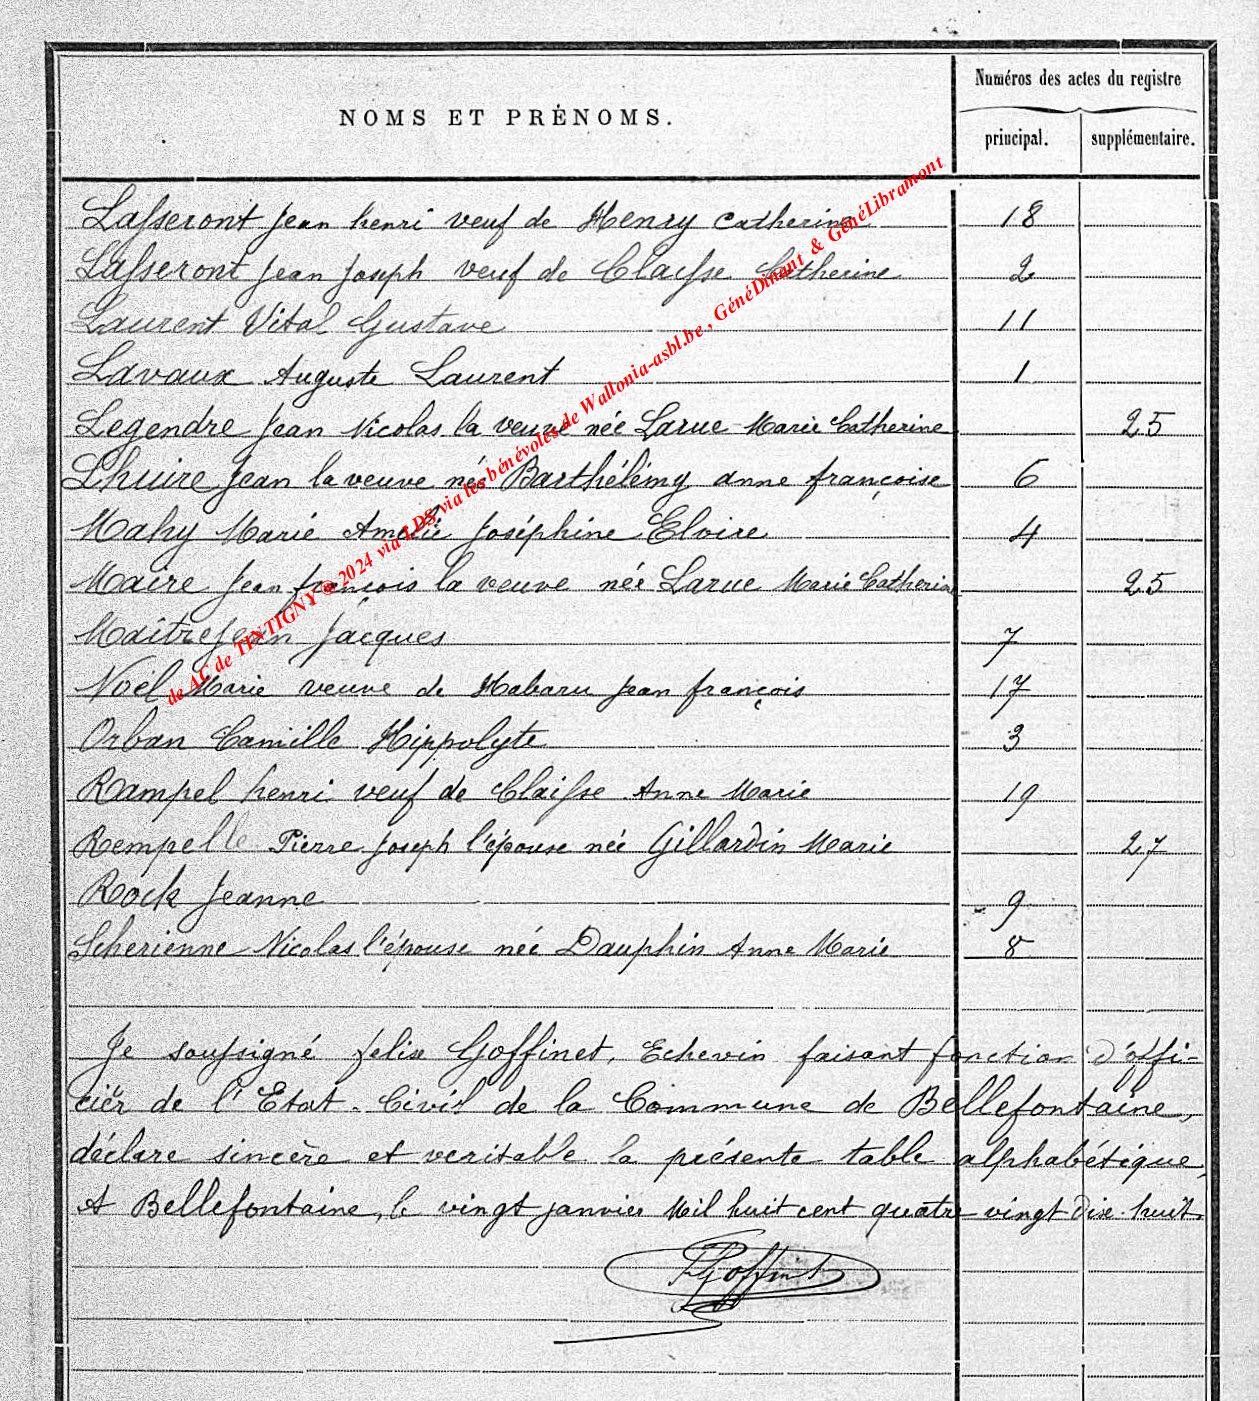 Numéros des actes du registre
NOMS ET PRÉNOMS.
principal. supplémentaire.
Lasseront Jean henri veuf de Henry Catherine 18
Lasseront Jean Joseph veuf de Claisse Catherine 2
Laurent Vital Gustave 11
Lavaux Auguste Laurent 1
Legendre Jean Nicolas la veuve née Larue Marie Catherine 25
Lhuire Jean la veuve née Barthélémy anne françoise 6
Mahy Marie Amélie Joséphine Elvire 4
Maire Jean françois la veuve née Larue Marie Catherine 25
Maitrejean Jacques 7
Noël Marie veuve de Habaru Jean françois 17
Orban Camille Hippolyte 3
Rampel henri veuf de Claisse Anne Marie 19
Rempelle Pierre Joseph l'épouse née Gillardin Marie 27
Rock Jeanne 9
Scherienne Nicolas l'épouse née Dauphin Anne Marie 8
Je soussigné felix Goffinet, Echevin faisant fonction d'offi=
cier de l'Etat-Civil de la Commune de Bellefontaine,
déclare sincère et veritable la présente table alphabétique,
A Bellefontaine, le vingt janvier Mil huit cent quatre vingt dix-huit.
FGoffinet
de AC de TINTIGNY @ 2024 via LDS via les bénévoles de Wallonia-asbl.be , GénéDinant & GénéLibramont